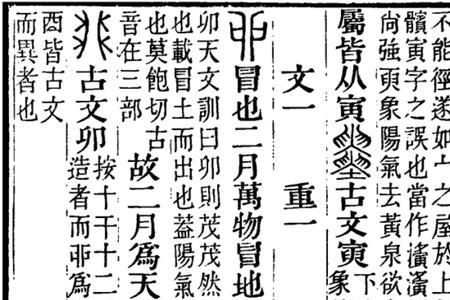 不能徑遂如宀之屋於上
髕寅字之誤也當作濥濥
尙強頁象陽氣去黃泉欲
屬皆从寅古文寅
下
象
文一 重一
丣冒也二月萬物冒地
卯天文訓曰卯則茂茂然
也載冒土而出也葢陽氣
也莫飽切古
音在三部
故二月爲天
古文卯
按十干十二
造者而丣爲
酉皆古文
而異者也